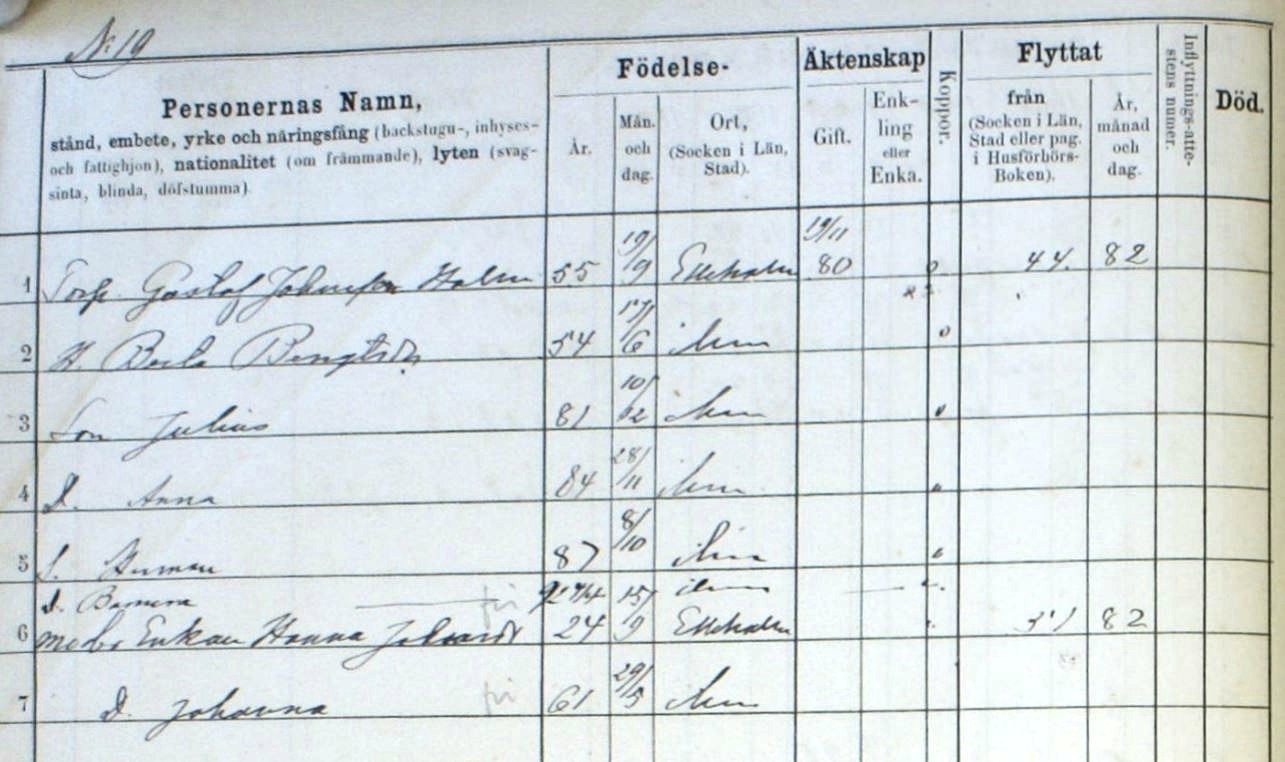 N: 19
Personernas Namn,
stånd, embete, yrke och näringsfång (backstugu-, inhyses-
och fattighjon), nationalitet (om främmande), lyten (svag-
sinta, blinda, döfstumma).
Födelse-
År.
Mån.
och
dag.
Ort,
(Socken i Län,
Stad).
Äktenskap
Gift.
Enk-
ling
eller
Enka.
Koppor.
Flyttat
från
(Socken i Län,
Stad eller pag.
i Husförhörs-
Boken).
År,
månad
och
dag.
Inflyttnings-atte-
stens numer.
Död.
1 Torp. Gustaf Johnsson Holm 55 19/9 Elleholm 19/11 80 44. 82
2 H. Berta Bengtsdr 54 17/6 ibm
3 Son Julius 81 10/12 ibm
4 D. Anna 84 28/11 ibm
5 S. Herman 87 8/10 ibm
D.
6 Enkan Hanna 24 15/9 Elleholm 82
7 D. Johanna 61 29/5 ibm